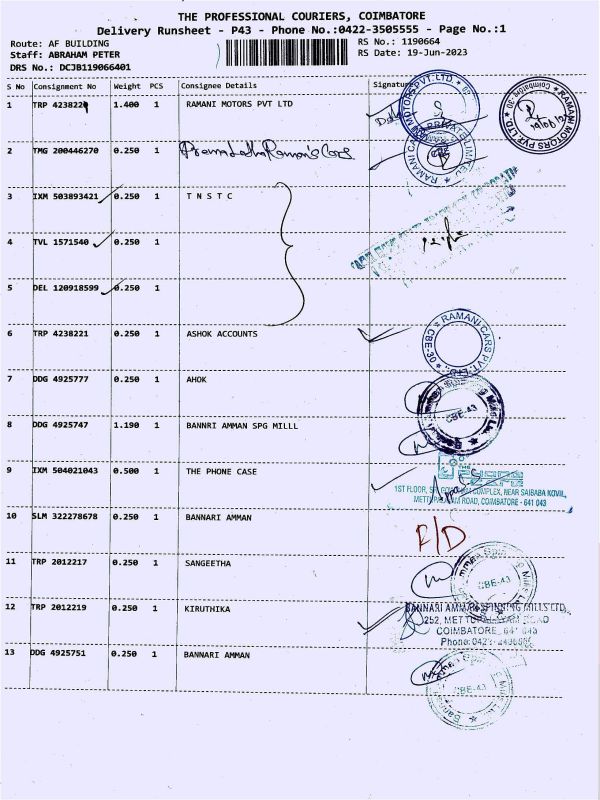 THE PROFESSIONAL COURIERS, COIMBATORE
Delivery Runsheet - P43 - Phone No.:0422-3505555 - Page No.:1
Route: AF BUILDING
Staff: ABRAHAM PETER
DRS No.: DCJB119066401
RS No.: 1190664
RS Date: 19-Jun-2023
S No Consignment No Weight PCS Consignee Details Signature
1 TRP 4238220 1.400 1 RAMANI MOTORS PVT LTD
2 TMG 200446270 0.250 1
3 IXM 503893421 0.250 1 T N S T C
4 TVL 1571540 0.250 1
5 DEL 120918599 0.250 1
6 TRP 4238221 0.250 1 ASHOK ACCOUNTS
7 DDG 4925777 0.250 1 AHOK
8 DDG 4925747 1.190 1 BANNRI AMMAN SPG MILLL
9 IXM 504021043 0.500 1 THE PHONE CASE
10 SLM 322278678 0.250 1 BANNARI AMMAN
11 TRP 2012217 0.250 1 SANGEETHA
12 TRP 2012219 0.250 1 KIRUTHIKA
13 DDG 4925751 0.250 1 BANNARI AMMAN
RAMANI MOTORS PVT. LTD.
RAMANI CARS PRIVATE LIMITED
RAMANI CARS PVT. LTD. CBE-30
CBE-43
1ST FLOOR, COMPLEX, NEAR SAIBABA KOVIL,
METTUPALAYAM ROAD, COIMBATORE - 641 043
R/D
CBE-43
BANNARI AMMAN SPINNING MILLS LTD.
252, METTUPALAYAM ROAD
COIMBATORE 641 043
Phone: 0422-
CBE-43